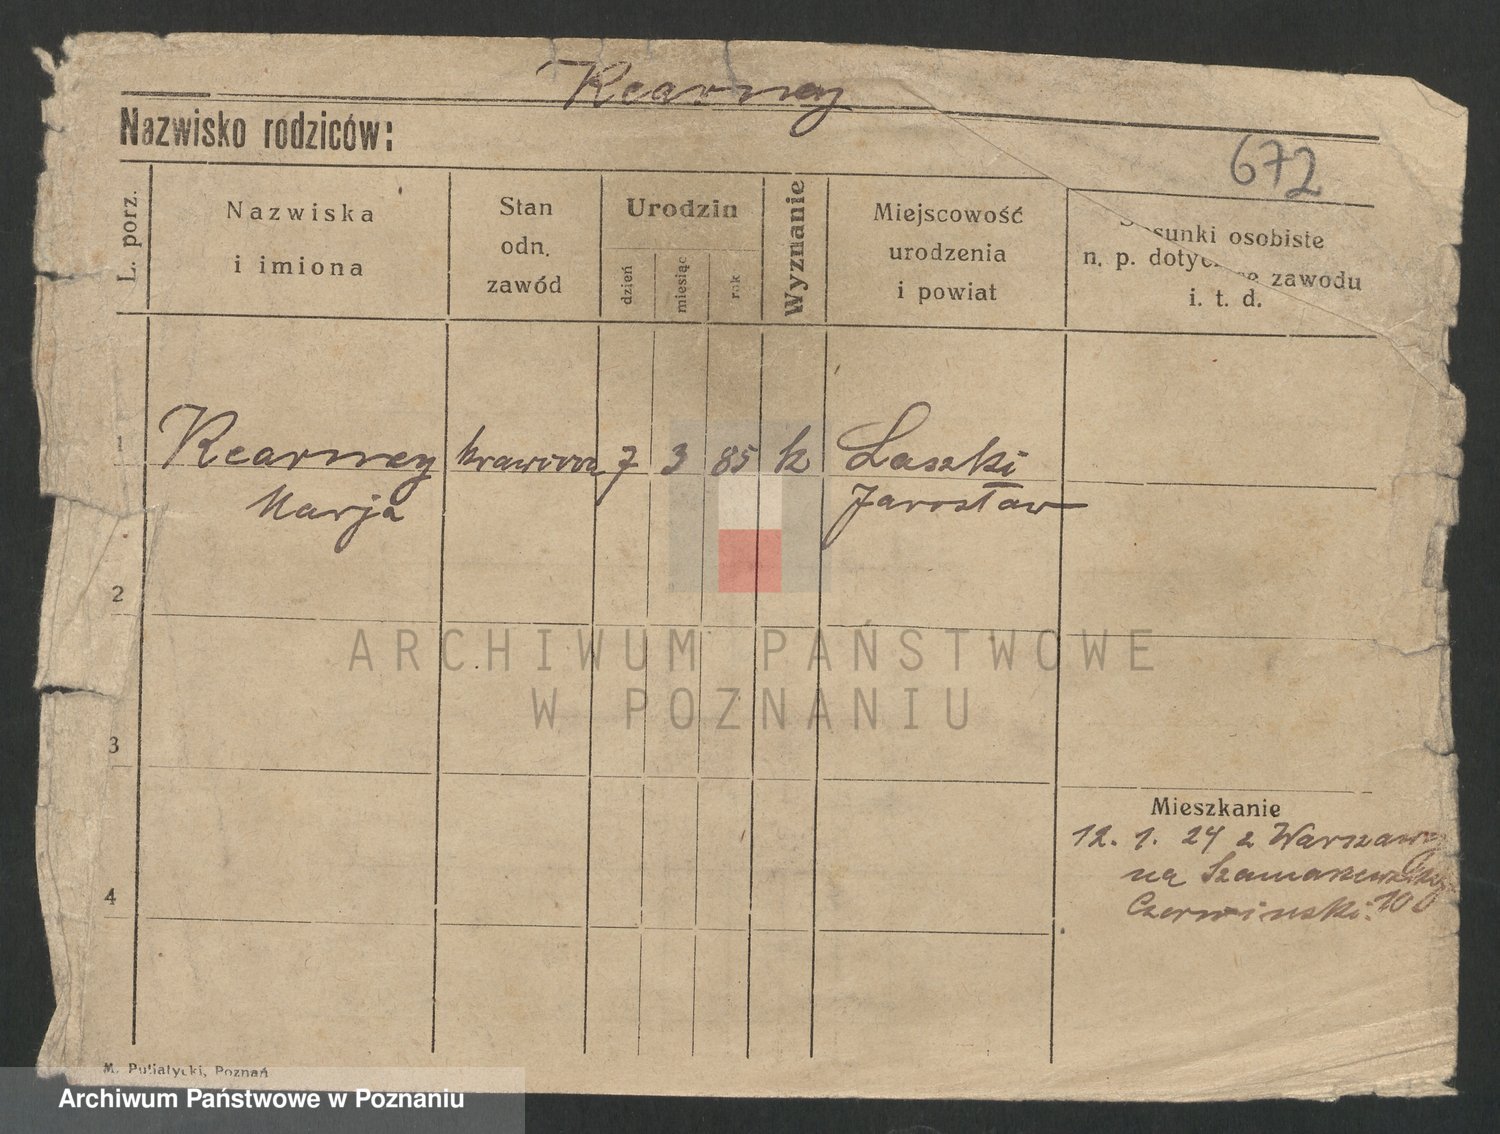 Kearney
Nazwisko rodziców:
672
L. porz.
Nazwiska
i imiona
Stan
odn.
zawód
Urodzin
dzień
miesiąc
rok
Wyznanie
Miejscowość
urodzenia
i powiat
osunki osobiste
n. p. dotyczące zawodu
i. t. d.
1 Kearney 7 3 85 k Laszki
Marja Jarosław
2
3
4
Mieszkanie
12. 1. 24 z Warszawy
na
Czerwinski 10
ARCHIWUM PAŃSTWOWE
W POZNANIU
M. Putiatycki, Poznań
Archiwum Państwowe w Poznaniu